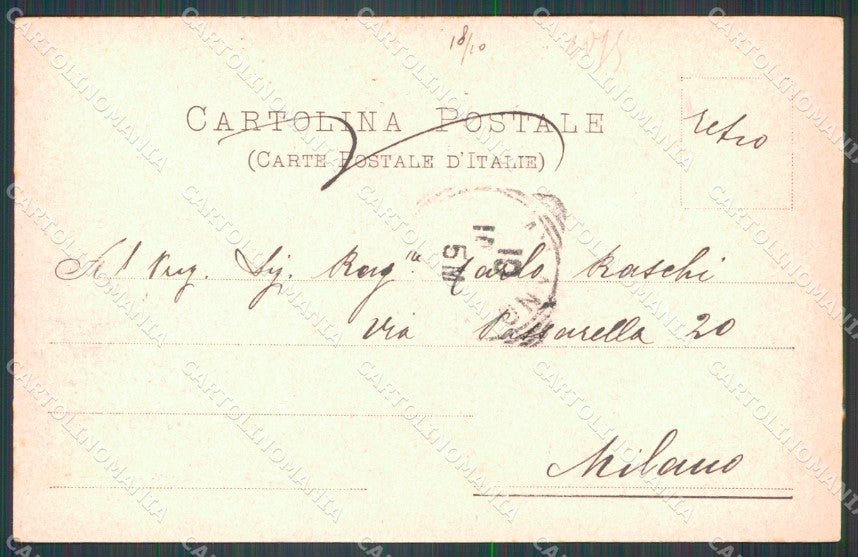 18/10
CARTOLINA POSTALE
(CARTE POSTALE D'ITALIE)
retro
Al Preg. Sig. Rag.re Carlo Raschi
Via Passarella 20
Milano
MILANO
19
10
5M
CARTOLINOMANIA